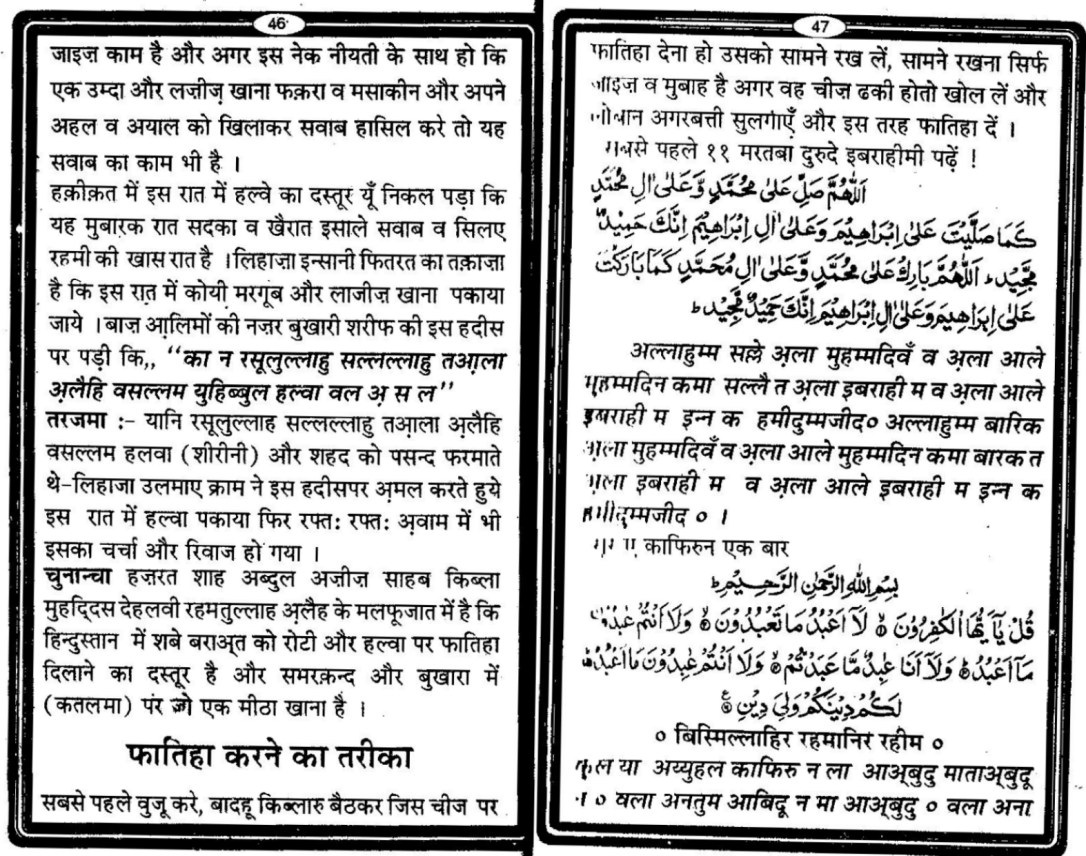 46
जाइज़ काम है और अगर इस नेक नीयती के साथ हो कि
एक उम्दा और लज़ीज़ खाना फक़रा व मसाकीन और अपने
अहल व अयाल को खिलाकर सवाब हासिल करे तो यह
सवाब का काम भी है ।
हक़ीक़त में इस रात में हल्वे का दस्तूर यूँ निकल पड़ा कि
यह मुबारक रात सदका व खैरात इसाले सवाब व सिलए
रहमी की खास रात है । लिहाज़ा इन्सानी फितरत का तक़ाज़ा
है कि इस रात में कोयी मरगूब और लाजीज़ खाना पकाया
जाये । बाज़ आ़लिमों की नज़र बुखारी शरीफ की इस हदीस
पर पड़ी कि,, ‘‘का न रसूलुल्लाहु सल्लल्लाहु तआ़ला
अ़लैहि वसल्लम युहिब्बुल हल्वा वल अ़ स ल’’
तरजमा :- यानि रसूलुल्लाह सल्लल्लाहु तआ़ला अ़लैहि
वसल्लम हलवा (शीरीनी) और शहद को पसन्द फरमाते
थे-लिहाजा उलमाए क्राम ने इस हदीसपर अ़मल करते हुये
इस रात में हल्वा पकाया फिर रफ्त: रफ्त: अ़वाम में भी
इसका चर्चा और रिवाज हो गया ।
चुनान्चा हज़रत शाह अब्दुल अज़ीज़ साहब किब्ला
मुहद्दिस देहलवी रहमतुल्लाह अ़लैह के मलफूजात में है कि
हिन्दुस्तान में शबे बराअ्त को रोटी और हल्वा पर फातिहा
दिलाने का दस्तूर है और समरक़न्द और बुखारा में
(कतलमा) पर जो एक मीठा खाना है ।
फातिहा करने का तरीका
सबसे पहले वुजू करे, बादहू किब्लारु बैठकर जिस चीज पर
47
फातिहा देना हो उसको सामने रख लें, सामने रखना सिर्फ
जाइज़ व मुबाह है अगर वह चीज़ ढकी होतो खोल लें और
लोबान अगरबत्ती सुलगाएँ और इस तरह फातिहा दें ।
सबसे पहले ११ मरतबा दुरुदे इबराहीमी पढ़ें !
اَللّٰهُمَّ صَلِّ عَلٰى مُحَمَّدٍ وَّعَلٰى اٰلِ مُحَمَّدٍ
كَمَا صَلَّيْتَ عَلٰى اِبْرَاهِيْمَ وَعَلٰى اٰلِ اِبْرَاهِيْمَ اِنَّكَ حَمِيْدٌ
مَّجِيْدٌ ط اَللّٰهُمَّ بَارِكْ عَلٰى مُحَمَّدٍ وَّعَلٰى اٰلِ مُحَمَّدٍ كَمَا بَارَكْتَ
عَلٰى اِبْرَاهِيْمَ وَعَلٰى اٰلِ اِبْرَاهِيْمَ اِنَّكَ حَمِيْدٌ مَّجِيْدٌ ط
अल्लाहुम्म सल्ले अ़ला मुहम्मदिवँ व अ़ला आले
मुहम्मदिन कमा सल्लै त अ़ला इबराही म व अ़ला आले
इबराही म इन्न क हमीदुम्मजीद० अल्लाहुम्म बारिक
अ़ला मुहम्मदिवँ व अ़ला आले मुहम्मदिन कमा बारक त
अ़ला इबराही म व अ़ला आले इबराही म इन्न क
हमीदुम्मजीद ० ।
काफिरुन एक बार
بِسْمِ اللّٰهِ الرَّحْمٰنِ الرَّحِيْمِ ط
قُلْ يٰٓاَيُّهَا الْكٰفِرُوْنَ ۙ لَآ اَعْبُدُ مَا تَعْبُدُوْنَ ۙ وَلَآ اَنْتُمْ عٰبِدُوْنَ
مَآ اَعْبُدُ ۚ وَلَآ اَنَا عَابِدٌ مَّا عَبَدْتُّمْ ۙ وَلَآ اَنْتُمْ عٰبِدُوْنَ مَآ اَعْبُدُ ۗ
لَكُمْ دِيْنُكُمْ وَلِيَ دِيْنِ ۧ
० बिस्मिल्लाहिर रहमानिर रहीम ०
कुल या अय्युहल काफिरु न ला आअ्बुदु माताअ्बुदू
न ० वला अनतुम आबिदू न मा आअ्बुदु ० वला अना